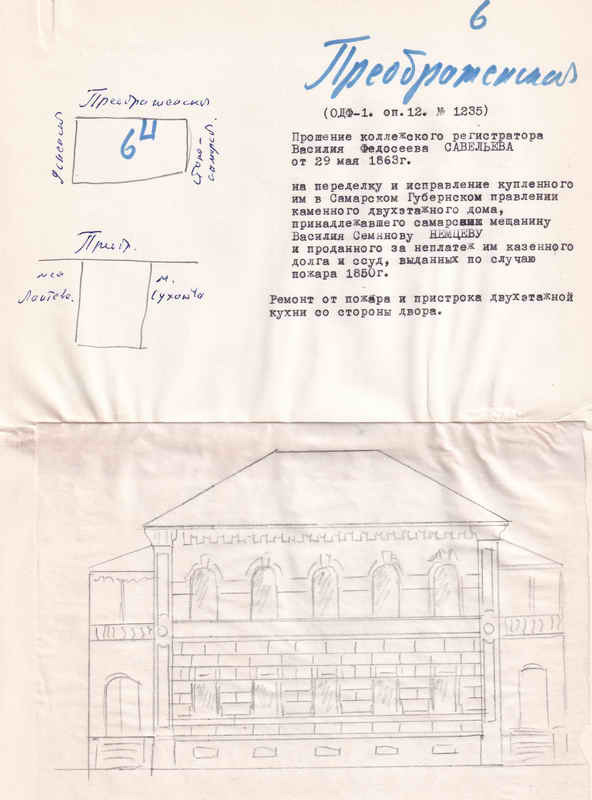 6
Преображенская
(ОДФ-1. оп.12. № 1235)
Прошение коллежского регистратора
Василия Федосеева САВЕЛЬЕВА
от 29 мая 1863г.
на переделку и исправление купленного
им в Самарском Губернском правлении
каменного двухэтажного дома,
принадлежавшего самарскии мещанину
Василия Семннову НЕМЦЕВУ
и проданного за неплатеж им казенного
долга и ссуд, выданных по случаю
пожара 1850г.
Ремонт от пожара и пристрока двухэтажной
кухни со стороны двора.
Преображенская
6 4
Преоб.
м.